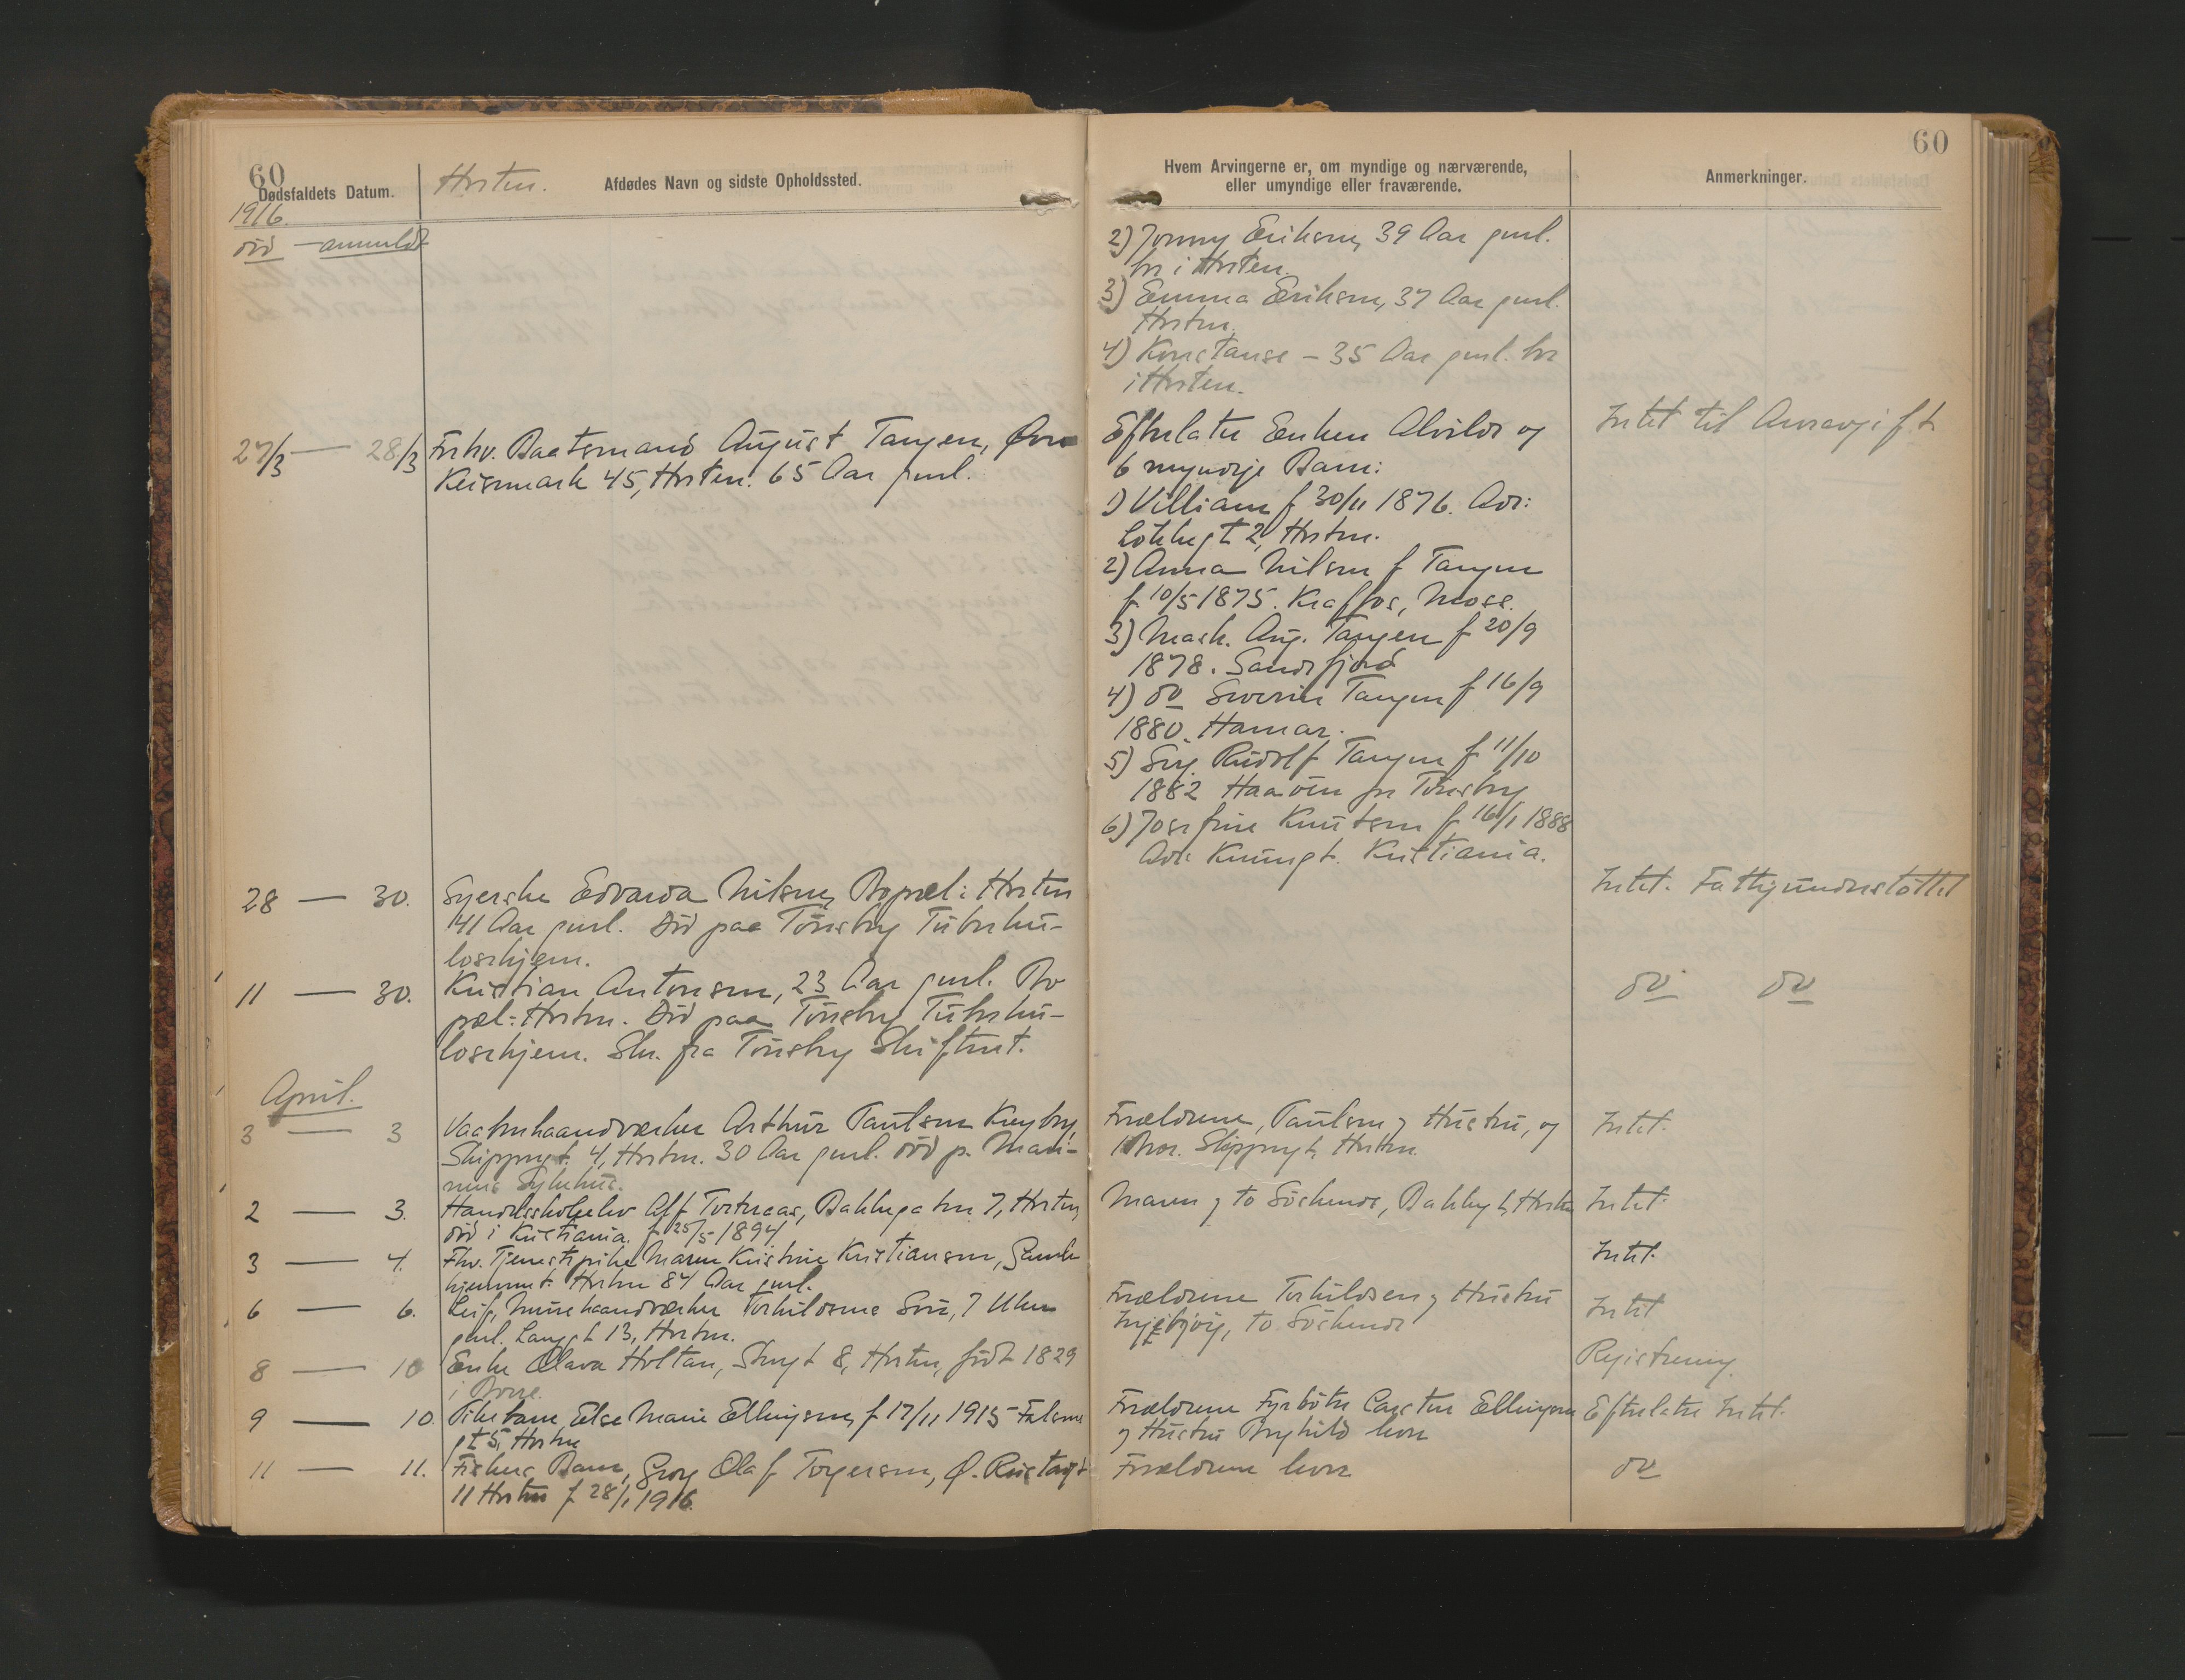 60
Dødsfaldets Datum.
Horten.
Afdødes Navn og sidste Opholdssted.
1916.
död — anmeldt
27/3 — 28/3 Forhv. Baatsmand August Tangen, Øvre
Keisemark 45, Horten. 65 Aar gml.
28 — 30. Syerske Edvarda Nilsen, Bopæl: Horten
41 Aar gml. Död paa Tönsberg Tuberku-
losehjem.
11 — 30. Kristian Antonsen, 23 Aar gml. Bo
pæl: Horten. Död paa Tönsberg Tuberku-
losehjem. Skr. fra Tönsberg Skifteret.
April.
3 — 3 Vaabenhaandværker Arthur Paulsen
Skippergt. 4, Horten. 30 Aar gml. död p. Mari-
nens Sykehus.
2 — 3. Handelsskoleelev Alf Torteraas, Bakkegaten 7, Horten,
död i Kristiania. f 25/5 1894
3 — 4. Fhv. Tjenestepike Maren Kristine Kristiansen, Gamle
hjemmet. Horten 84 Aar gml.
6 — 6. Leif, Minehaandværker Torkildsens Sön, 7 Uker
gml. Langgt 13, Horten.
8 — 10 Enke Olava Holtan, Storgt 8, Horten, född 1829
i Borre.
9 — 10. Pikebarn, Else Marie Ellingsen, f 17/11 1915 Falsens
gt 5, Horten
11 — 11. Fiskers Barn, Georg Olaf Torgersen, Ø. Rustadgt
11 Horten f 28/1 1916.
60
Hvem Arvingerne er, om myndige og nærværende,
eller umyndige eller fraværende.
Anmerkninger.
2) Jonny Eriksen, 39 Aar gml.
bor i Horten.
3) Emma Eriksen, 37 Aar gml.
Horten.
4) Konstanse – 35 Aar gml. bor
i Horten.
Efterlater Enken Alvilde og
6 myndige Barn:
Intet til Arveavgift
1) Villiam f 30/11 1876. Adr:
Løkkegt 2, Horten.
2) Anna Nilsen f Tangen
f 10/5 1875. Krapfos, Moss.
3) Mask. Aug. Tangen f 20/9
1878. Sandefjord
4) do Severin Tangen f 16/9
1880. Hamar.
5) Rudolf Tangen f 11/10
1882 Haaöen pr Tönsberg
6) Josefine Knutsen f 16/1 1888
Adr: Kristiania.
Intet. Fattigunderstöttet
do do
Forældrene, Paulsen og Hustru, og
1 Bror. Skippergt, Horten.
Intet.
Moren og to Söskende, Bakkegt, Horten
Intet.
Intet.
Forældrene Torkildsen og Hustru
Ingebjörg, to Söskende
Intet
Registrering.
Forældrene Fyrböter Carsten Ellingsen
og Hustru Brynhild lever
Efterlater Intet.
Forældrene lever
do